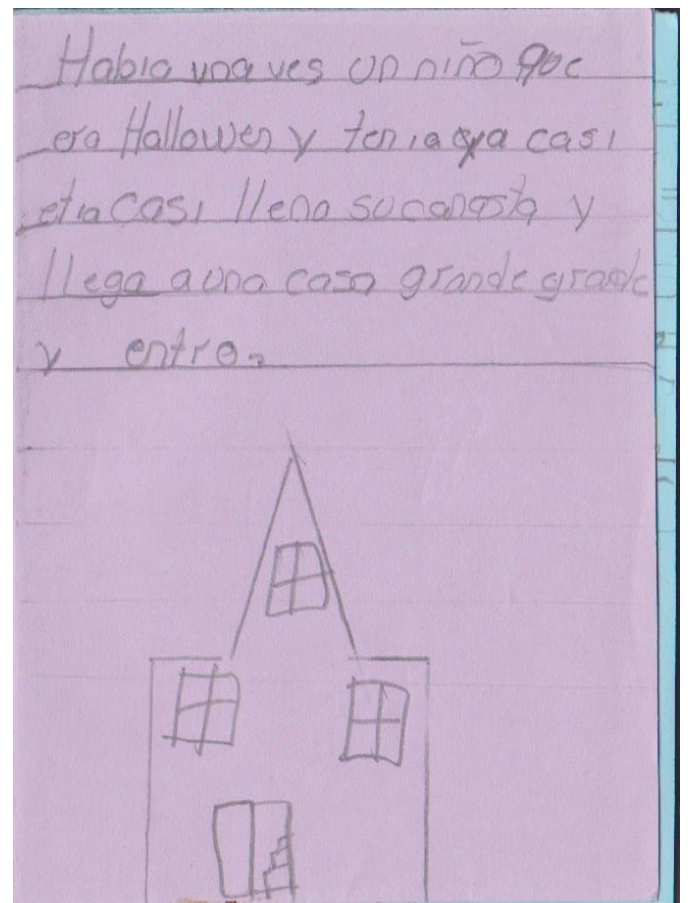 Habia una ves un niño que
era Hallowen y tenia ya casi
casi lleno su canasta y
llega a una casa grande grande
y entro.